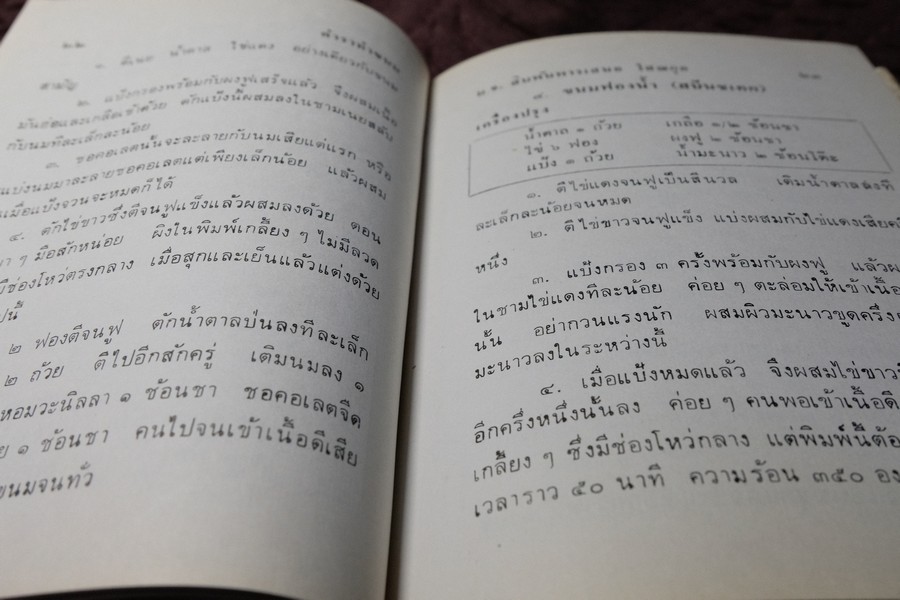 ๒๒ ตำราทำขนม
๑. ตีเนย น้ำตาล ไข่แดง อย่างเดียวกับขนม
สามัญ
๒. แป้งกรองพร้อมกับผงฟูเสร็จแล้ว จึงผสมเนื้อ
กับนมทีละเล็กละน้อย
๓. ชอคอเลตนั้นจะละลายกับนมเสียแต่แรก หรือ
แบ่งนมมาละลายชอคอเลตแต่เพียงเล็กน้อย แล้วผสม
เมื่อแป้งจวนจะหมดก็ได้
๔. ตักไข่ขาวซึ่งตีจนฟูแข็งแล้วผสมลงด้วย ตอน
ๆ มือสักหน่อย ผิงในพิมพ์เกลี้ยง ๆ ไม่มีลวด
มีช่องโหว่ตรงกลาง เมื่อสุกและเย็นแล้วแต่งด้วย
๒ ฟองตีจนฟู ตักน้ำตาลป่นลงทีละเล็ก
๒ ถ้วย ตีไปอีกสักครู่ เติมนมลง ๑
หอมวะนิลลา ๑ ช้อนชา ชอคอเลตจืด
๑ ช้อนชา คนไปจนเข้าเนื้อดีเสีย
ขนมจนทั่ว
๒๓
๔. ขนมฟองน้ำ
เครื่องปรุง
น้ำตาล ๑ ถ้วย เกลือ ๑/๒ ช้อนชา
ไข่ ๖ ฟอง ผงฟู ๒ ช้อนชา
แป้ง ๑ ถ้วย น้ำมะนาว ๒ ช้อนโต๊ะ
๑. ตีไข่แดงจนฟูเป็นสีนวล เติมน้ำตาลลงที
ละเล็กละน้อยจนหมด
๒. ตีไข่ขาวจนฟูแข็ง แบ่งผสมกับไข่แดงเสียครึ่
หนึ่ง
๓. แป้งกรอง ๓ ครั้งพร้อมกับผงฟู แล้วผ
ในชามไข่แดงทีละน้อย ค่อย ๆ ตะล่อมให้เข้าเนื้อ
นั้น อย่ากวนแรงนัก ผสมผิวมะนาวขูดครึ่ง
มะนาวลงในระหว่างนี้
๔. เมื่อแป้งหมดแล้ว จึงผสมไข่ขาว
อีกครึ่งหนึ่งนั้นลง ค่อย ๆ คนพอเข้าเนื้อดี
เกลี้ยง ๆ ซึ่งมีช่องโหว่กลาง แต่พิมพ์นี้ต้อ
เวลาราว ๕๐ นาที ความร้อน ๓๕๐ อง